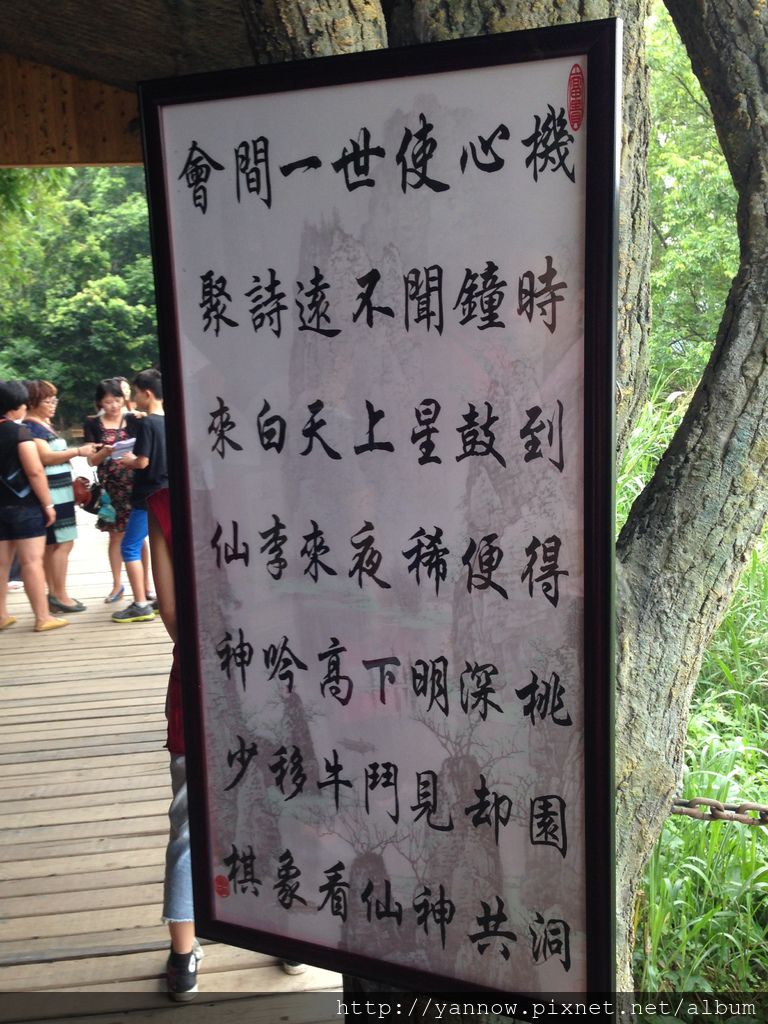 機時到得桃園洞
心鐘鼓便深却共
使聞星稀明見神
世不上夜下鬥仙
一遠天來高牛看
間詩白李吟移象
會聚來仙神少棋
http://yannow.pixnet.net/album